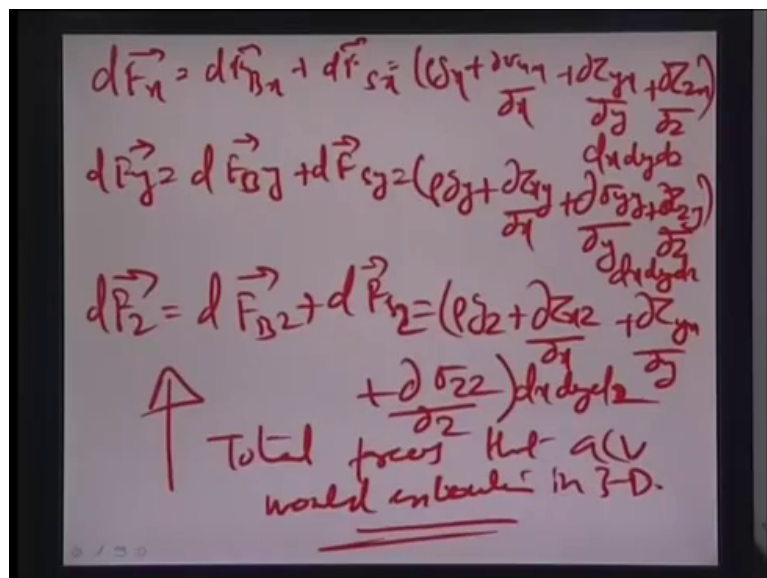 dF⃗x = dF⃗Bx + dF⃗Sx = (ρgx + ∂σxx/∂x + ∂τyx/∂y + ∂τzx/∂z)
dxdydz
dF⃗y = dF⃗By + dF⃗Sy = (ρgy + ∂τxy/∂x + ∂σyy/∂y + ∂τzy/∂z)
dxdydz
dF⃗z = dF⃗Bz + dF⃗Sz = (ρgz + ∂τxz/∂x + ∂τyx/∂y
+ ∂σzz/∂z) dxdydz
Total forces that a CV
would in 3-D.